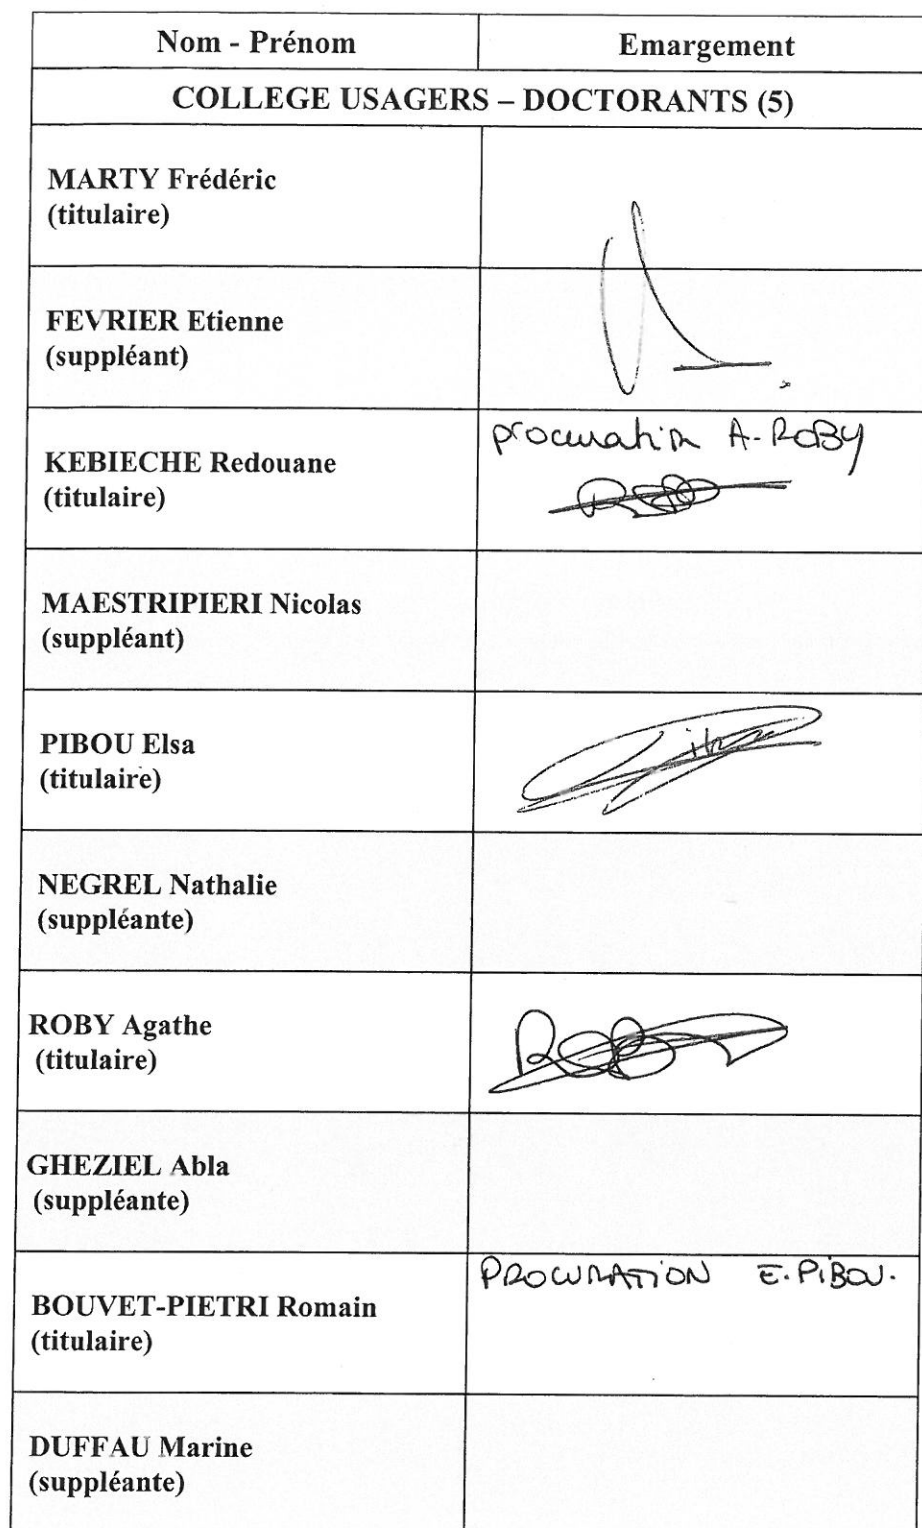 Nom - Prénom
Emargement
COLLEGE USAGERS – DOCTORANTS (5)
MARTY Frédéric
(titulaire)
FEVRIER Etienne
(suppléant)
KEBIECHE Redouane
(titulaire)
procuration A-ROBY
MAESTRIPIERI Nicolas
(suppléant)
PIBOU Elsa
(titulaire)
NEGREL Nathalie
(suppléante)
ROBY Agathe
(titulaire)
GHEZIEL Abla
(suppléante)
BOUVET-PIETRI Romain
(titulaire)
PROCURATION E. PIBOU.
DUFFAU Marine
(suppléante)